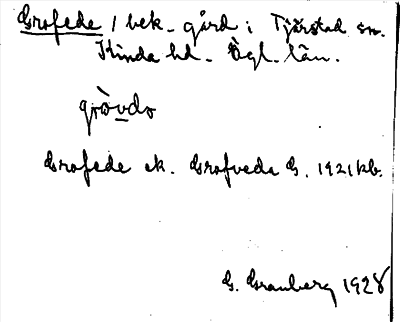 Grofede / bek. gård i Tjärstad sn.
Kinda hd. Ögl. län.
Grofede ek. Grofveda G. 1921 kb.
G. Granberg 1928